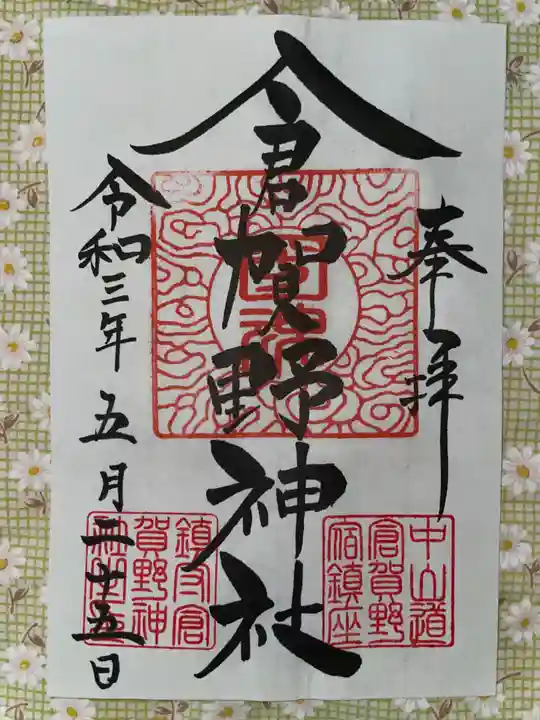 奉拝
倉賀野神社
令和三年五月二十五日
中山道
倉賀野
宿鎮座
鎮守倉
賀野神